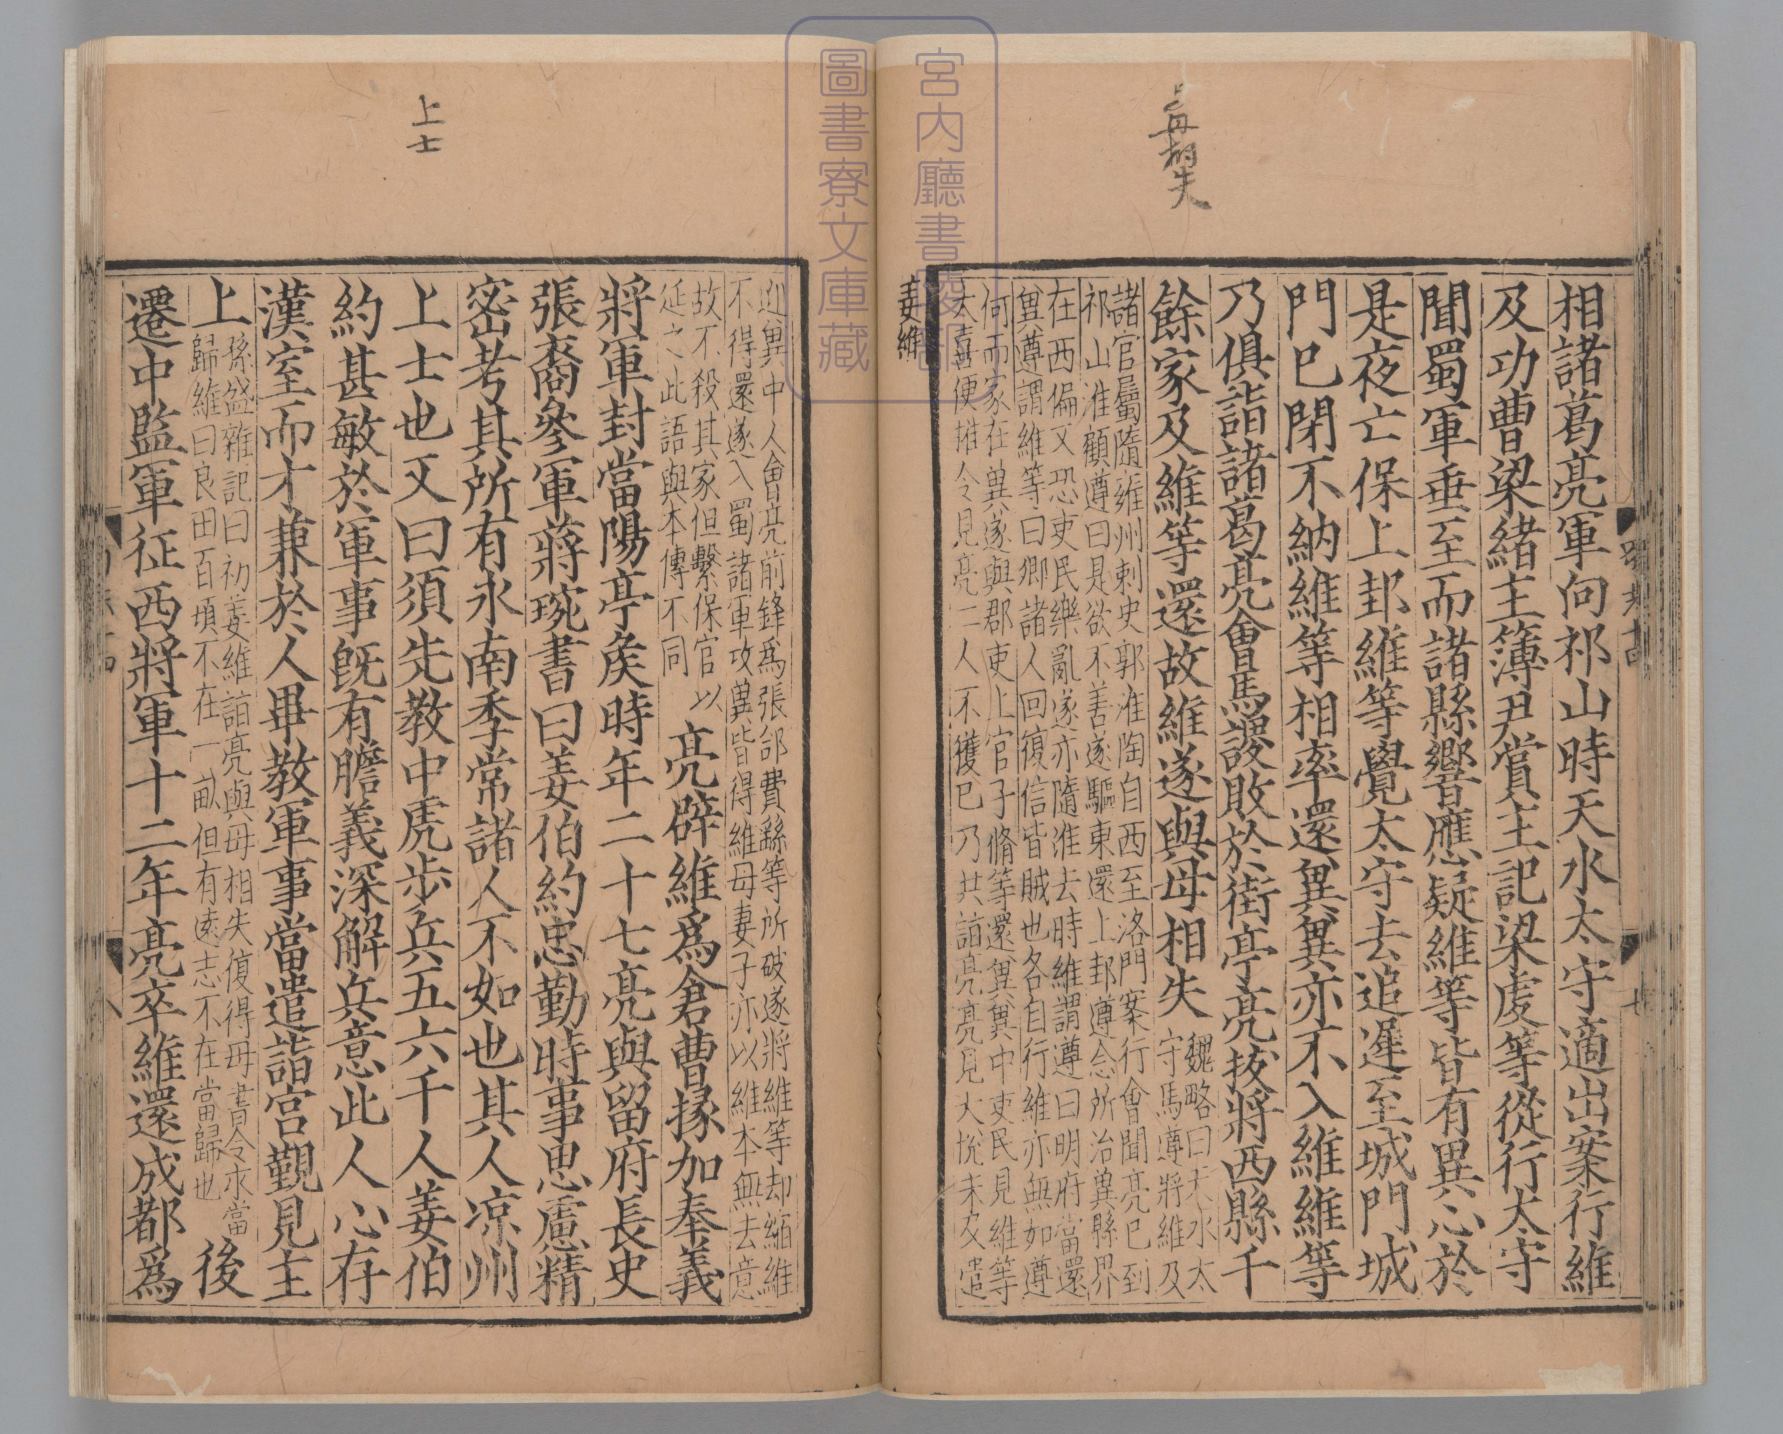 相諸葛亮軍向祁山時天水太守適出案行維
及功曹梁緒主簿尹賞主記梁虔等從行太守
聞蜀軍垂至而諸縣響應疑維等皆有異心於
是夜亡保上邽維等覺太守去追遲至城門城
門已閉不納維等相率還兾兾亦不入維維等
乃俱詣諸葛亮會馬謖敗於街亭亮拔將西縣千
餘家及維等還故維遂與母相失
魏略曰天水太
守馬遵將維及
諸官屬隨雍州刺史郭淮陶自西至洛門案行會聞亮已到
祁山淮顧遵曰是欲不善遂驅東還上邽遵念所治兾縣界
在西偏又恐吏民樂亂遂亦隨淮去時維謂遵曰明府當還
兾遵謂維等曰卿諸人回復信皆賊也各自行維亦無如遵
何而家在兾遂與郡吏上官子脩等還兾兾中吏民見維等
大喜便推令見亮二人不獲已乃共詣亮亮見大悅未及遣
姜維
迎兾中人會亮前鋒爲張郃費繇等所破遂將維等却縮維
不得還遂入蜀諸軍攻兾皆得維母妻子亦以維本無去意
故不殺其家但繫保官以
延之此語與本傳不同
亮辟維爲倉曹掾加奉義
將軍封當陽亭矦時年二十七亮與留府長史
張裔參軍蔣琬書曰姜伯約忠勤時事思慮精
密考其所有永南季常諸人不如也其人凉州
上士也又曰須先教中虎步兵五六千人姜伯
約甚敏於軍事旣有膽義深解兵意此人心存
漢室而才兼於人畢教軍事當遣詣宮覲見主
上
孫盛雜記曰初姜維詣亮與母相失復得母書令求當
歸維曰良田百頃不在一畝但有遠志不在當歸也
後
遷中監軍征西將軍十二年亮卒維還成都爲
上士
宮內廳書陵部
圖書寮文庫藏